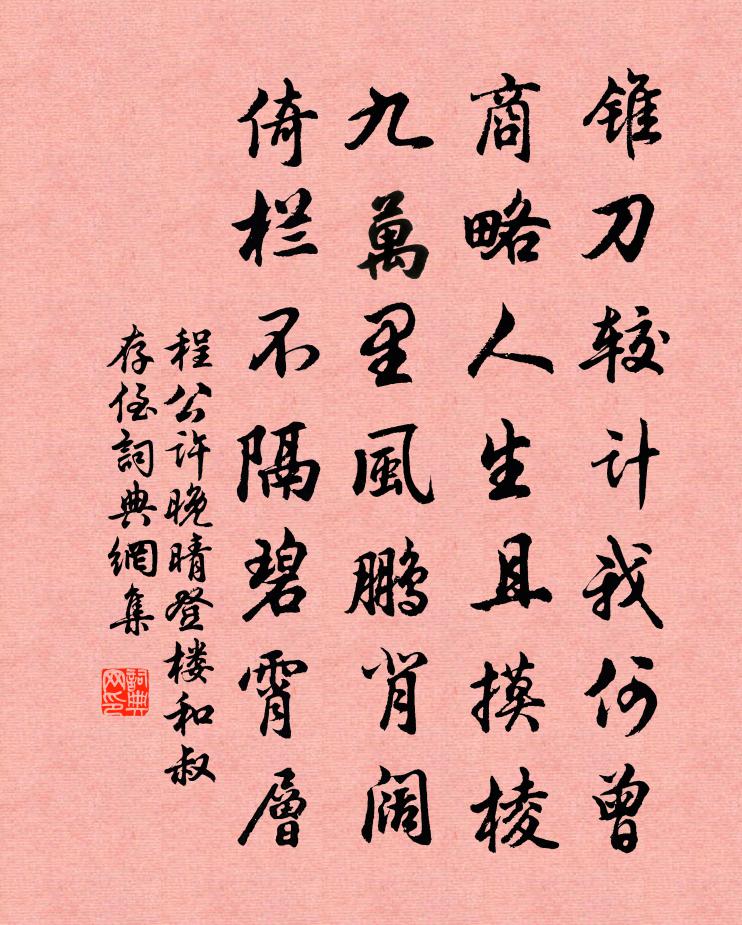 锥刀较计我何曾
商略人生且摸棱
九萬里風鵬背阔
倚栏不隔碧霄層
程公许晚晴登楼和叔
存侄詞典網集
詞典
网印